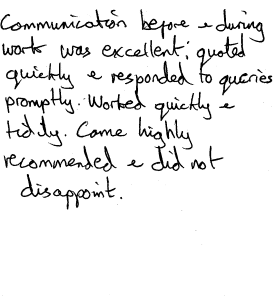 Communication before & during
work was excellent; quoted
quickly & responded to queries
promptly. Worked quickly &
tidily. Came highly
recommended & did not
disappoint.